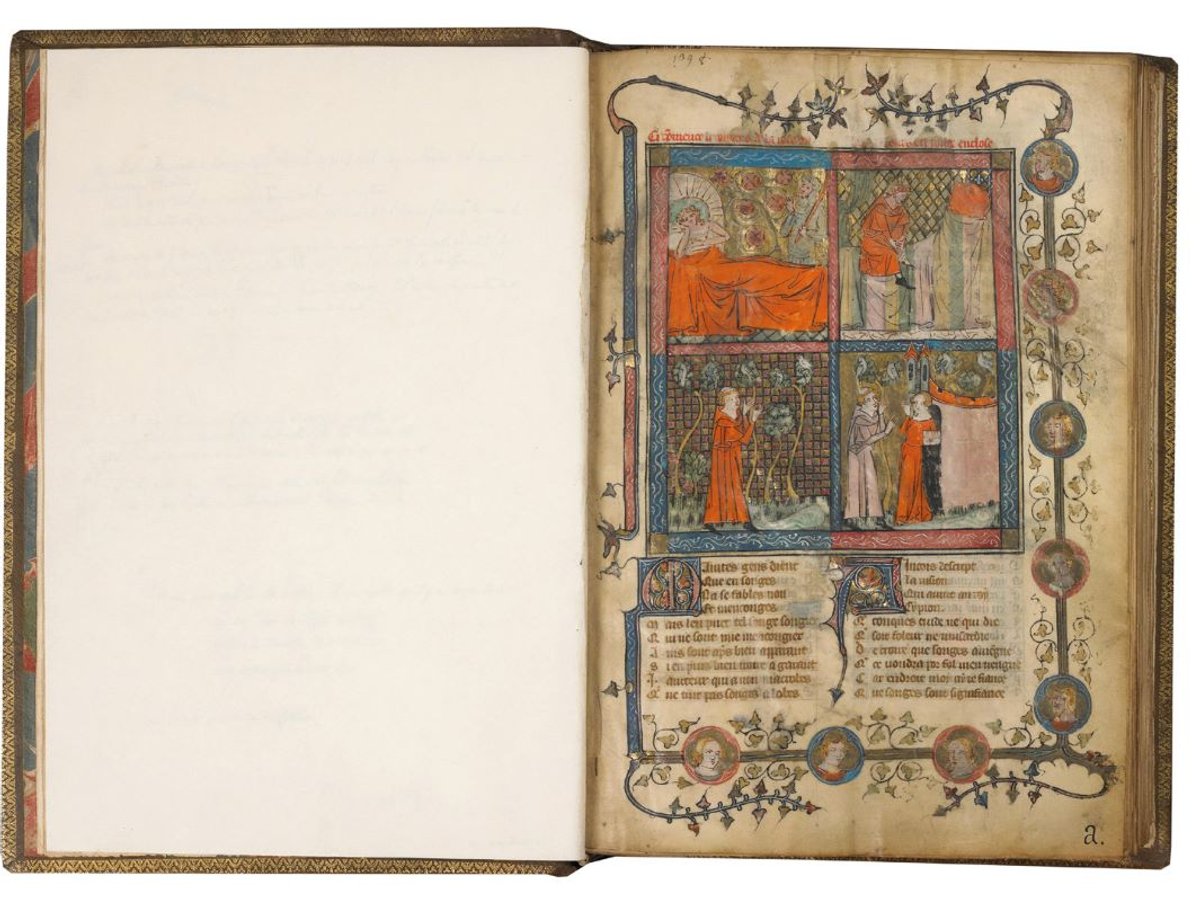 enclose
Maintes gens dient
Que en songes
Na se fables non
Et menconges
M ais len puet tel songe songier
Q ui ne sont mie mencongier
A ins sont aps bien apparant
S i en puis bien traire a garant
J. aucteur qui a non macrobes
Q ui ne tint pas songes a lobes
Aincois descript
la vision
Qui auint au roy
Cypion
Q conques cuide ne qui die
Q soit foleur ne musardie
D e croire que songes auiegne
Q ce voudra por fol men tiengne
C ar endroit moi ay ie fiance
Q ue songes sont signifiance
a.